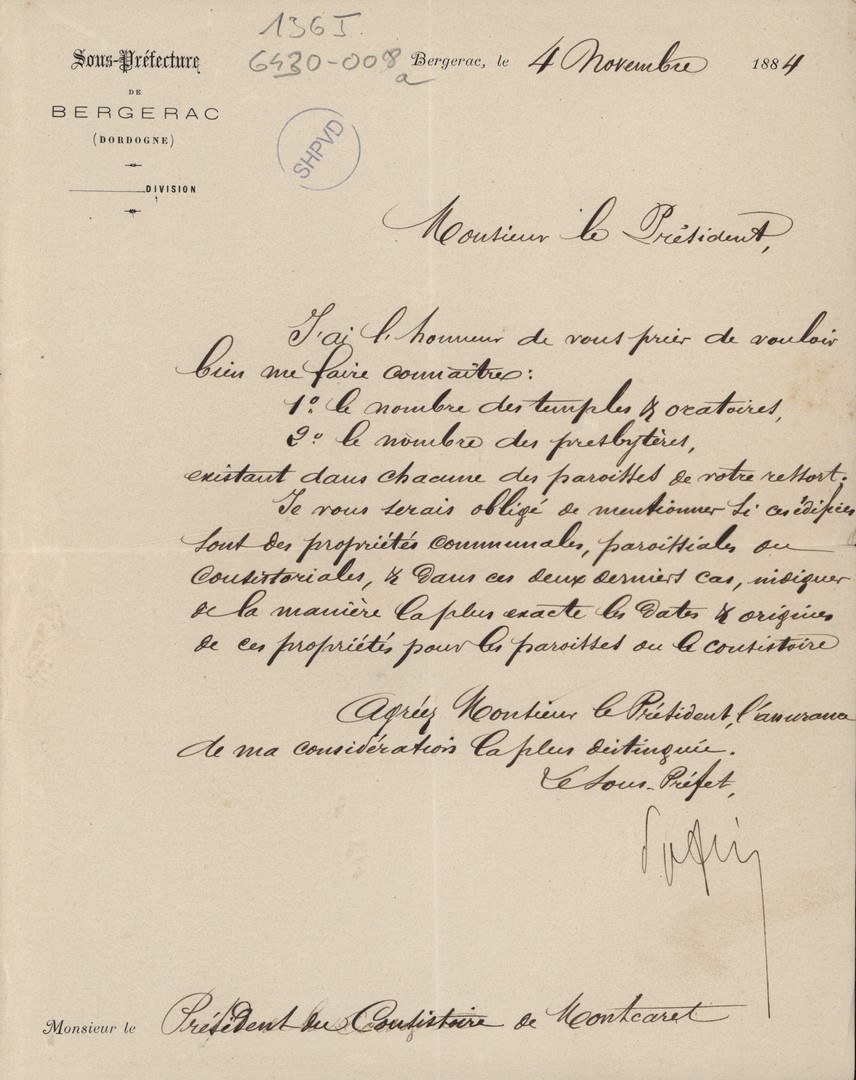 136J
6430-008
a
Sous-Préfecture
DE
BERGERAC
(DORDOGNE)
DIVISION
SHPVD
Bergerac, le 4 Novembre 1884
Monsieur le Président,
J'ai l'honneur de vous prier de vouloir
bien me faire connaître :
1º le nombre des temples & oratoires,
2º le nombre des presbytères,
existant dans chacune des paroisses de votre ressort.
Je vous serais obligé de mentionner si ces édifices
sont des propriétés communales, paroissiales ou
consistoriales, & dans ces deux derniers cas, indiquer
de la manière la plus exacte les dates & origines
de ces propriétés pour les paroisses ou le consistoire
Agréez Monsieur le Président, l'assurance
de ma considération la plus distinguée.
Le Sous-Préfet,
Monsieur le Président du Consistoire de Montcaret